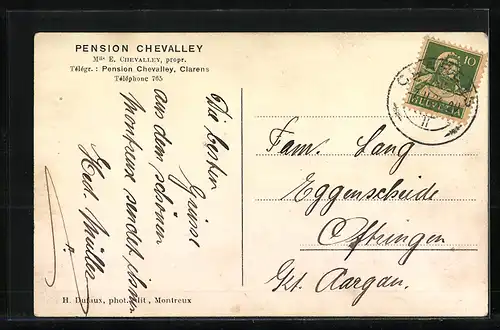 PENSION CHEVALLEY
Mlle E. CHEVALLEY, propr.
Télégr. : Pension Chevalley, Clarens
Téléphone 765
Die besten
Grüsse
aus dem schönen
Montreux sendet ihnen
Hed. Müller
10
HELVETIA
Fam. Lang
Eggenscheide
Oftringen
Kt. Aargau.
H. Dufaux, phot. édit, Montreux